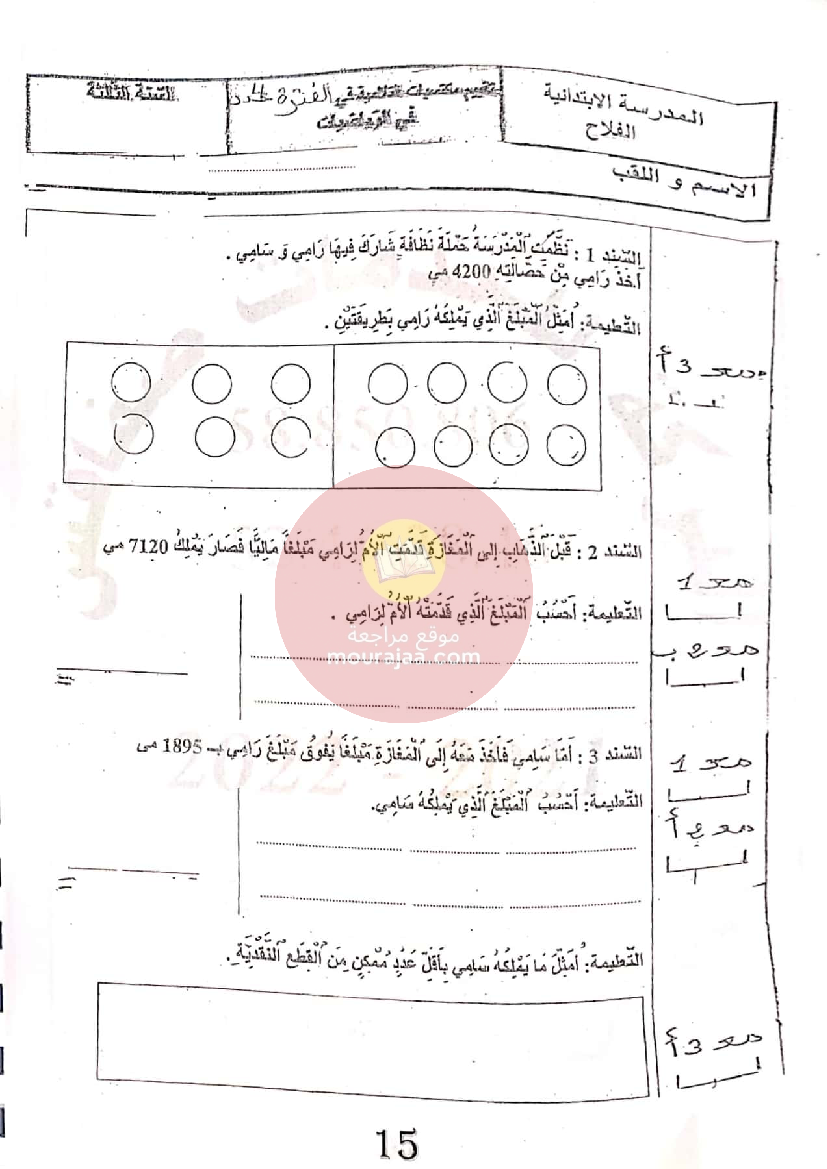 المدرسة الابتدائية
الفلاح
تقييم مكتسبات التلاميذ في الفترة 4
في الرياضيات
السنة الثالثة
الاسم و اللقب
السّند 1 : نَظَّمَتِ ٱلْمَدْرَسَةُ حَمْلَةَ نَظَافَةٍ شَارَكَ فِيهَا رَامِي وَ سَامِي .
أَخَذَ رَامِي مِنْ حَصَّالَتِهِ 4200 مي
التّعليمة: أُمَثِّلُ ٱلْمَبْلَغَ ٱلَّذِي يَمْلِكُهُ رَامِي بِطَرِيقَتَيْنِ .
مع 3 أ
السّند 2 : قَبْلَ ٱلذَّهَابِ إِلَى ٱلْمَغَازَةِ قَدَّمَتِ ٱلْأُمُّ لِرَامِي مَبْلَغًا مَالِيًّا فَصَارَ يَمْلِكُ 7120 مي
مع 1
التّعليمة: أَحْسُبُ ٱلْمَبْلَغَ ٱلَّذِي قَدَّمَتْهُ ٱلْأُمُّ لِرَامِي .
مع 2 ب
موقع مراجعة
mourajaa.com
السّند 3 : أَمَّا سَامِي فَأَخَذَ مَعَهُ إِلَى ٱلْمَغَازَةِ مَبْلَغًا يَفُوقُ مَبْلَغَ رَامِي بـ 1895 مي
مع 1
التّعليمة: أَحْسُبُ ٱلْمَبْلَغَ ٱلَّذِي يَمْلِكُهُ سَامِي.
مع 2 أ
التّعليمة: أُمَثِّلُ مَا يَمْلِكُهُ سَامِي بِأَقَلِّ عَدَدٍ مُمْكِنٍ مِنَ ٱلْقِطَعِ ٱلنَّقْدِيَّةِ.
مع 3 أ
15